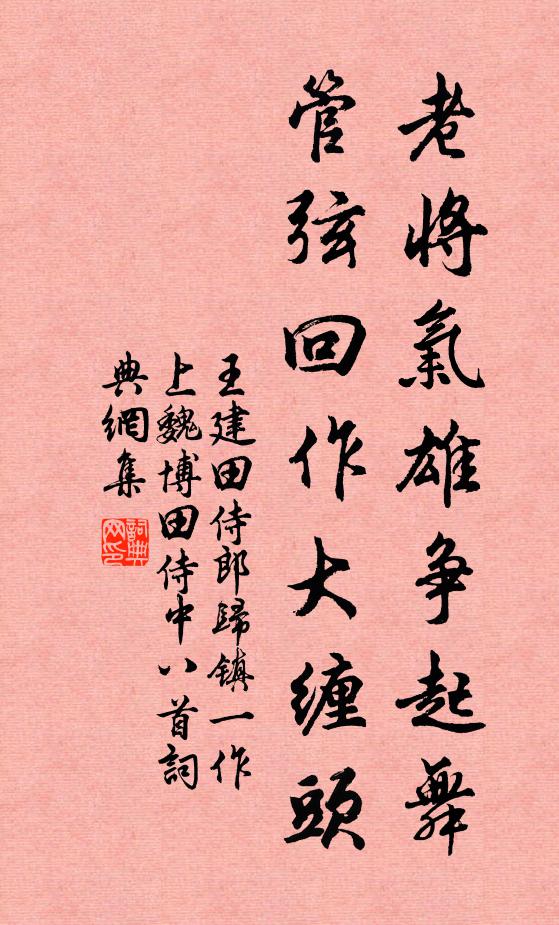 老將氣雄争起舞
管弦回作大纏頭
王建田侍郎歸镇一作
上魏博田侍中八首詞
典網集
詞典网印